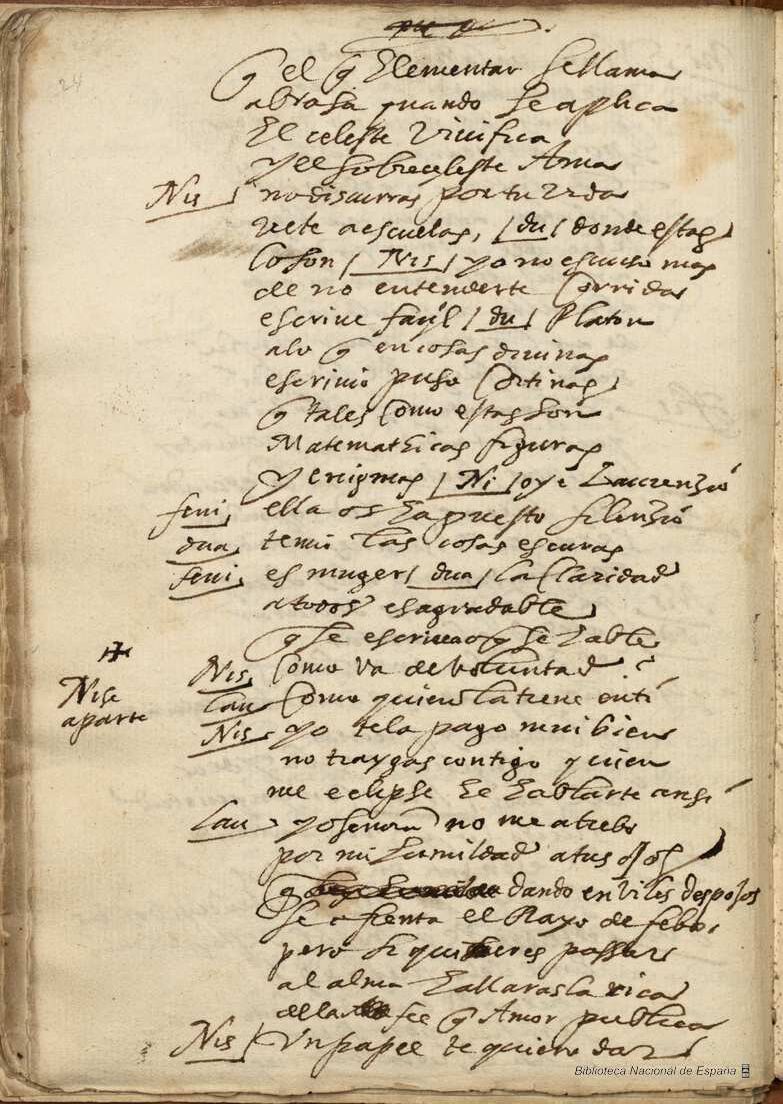 24
q el q Elementar se llama
abrasa quando se aplica
El celeste viuifica
y el sobreceleste Ama
Nis no discurras por tu vida
vete a escuelas, | du | donde estas
lo son | Nis | yo no escuso mas
de no entenderte Corrida
escriue fasil | du | Platon
a lo q en cosas diuinas
escriuio puso Cortinas
q tales Como estas son
Matemathicas figuras
y enigmas | Ni | oye Laurenzio
feni ella os ha puesto silenzio
dua temio las cosas escuras
feni es muger | dua | la Claridad
a todos es agradable
q se escriua o q se hable
Nis Como va de voluntad?
Nise
aparte
Lau Como quien la tiene en ti
Nis yo te la pago mui bien
no traygas contigo quien
me eclipse el hablarte ansi
Lau yo señora no me atrebo
por mi humildad a tus ojos
q dando en viles despojos
se afrenta el Rayo de febo
pero si quieres passar
al alma hallarasla rica
de la fee q Amor publica
Nis Un papel te quiero dar
Biblioteca Nacional de España